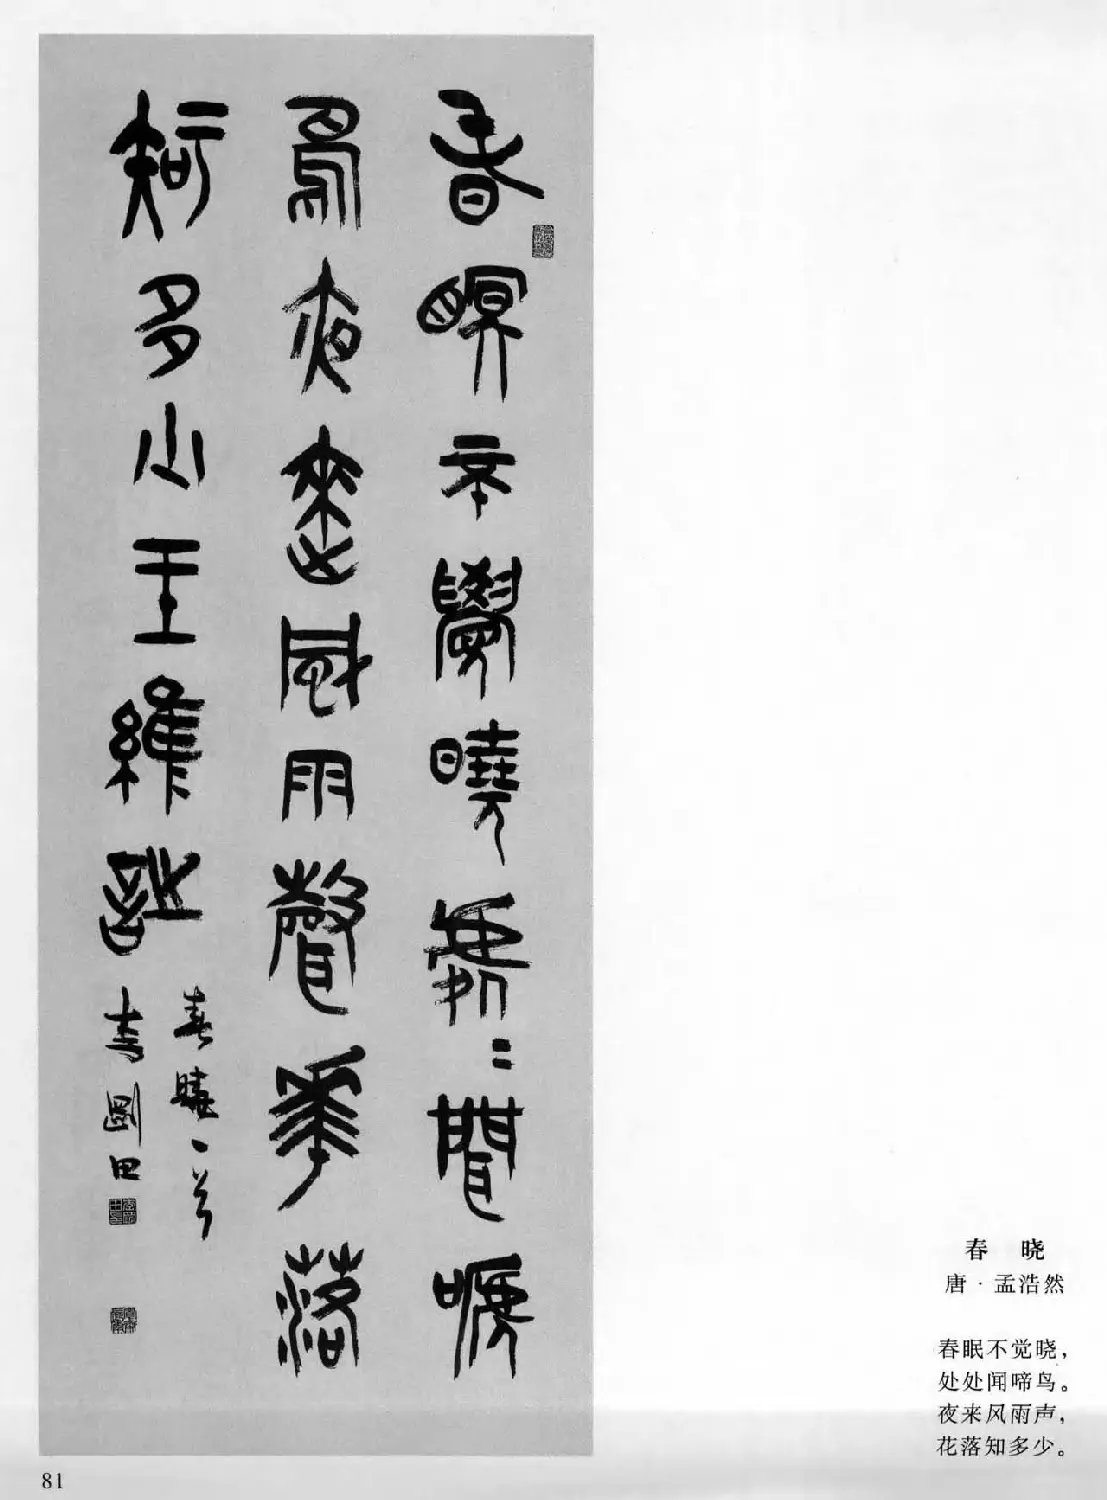 春瞑不覺曉處〻聞嗁
鳥夜來風雨聲華落
知多少王維詩
春曉一首
李剛田
春 晓
唐·孟浩然
春眠不觉晓，
处处闻啼鸟。
夜来风雨声，
花落知多少。
81